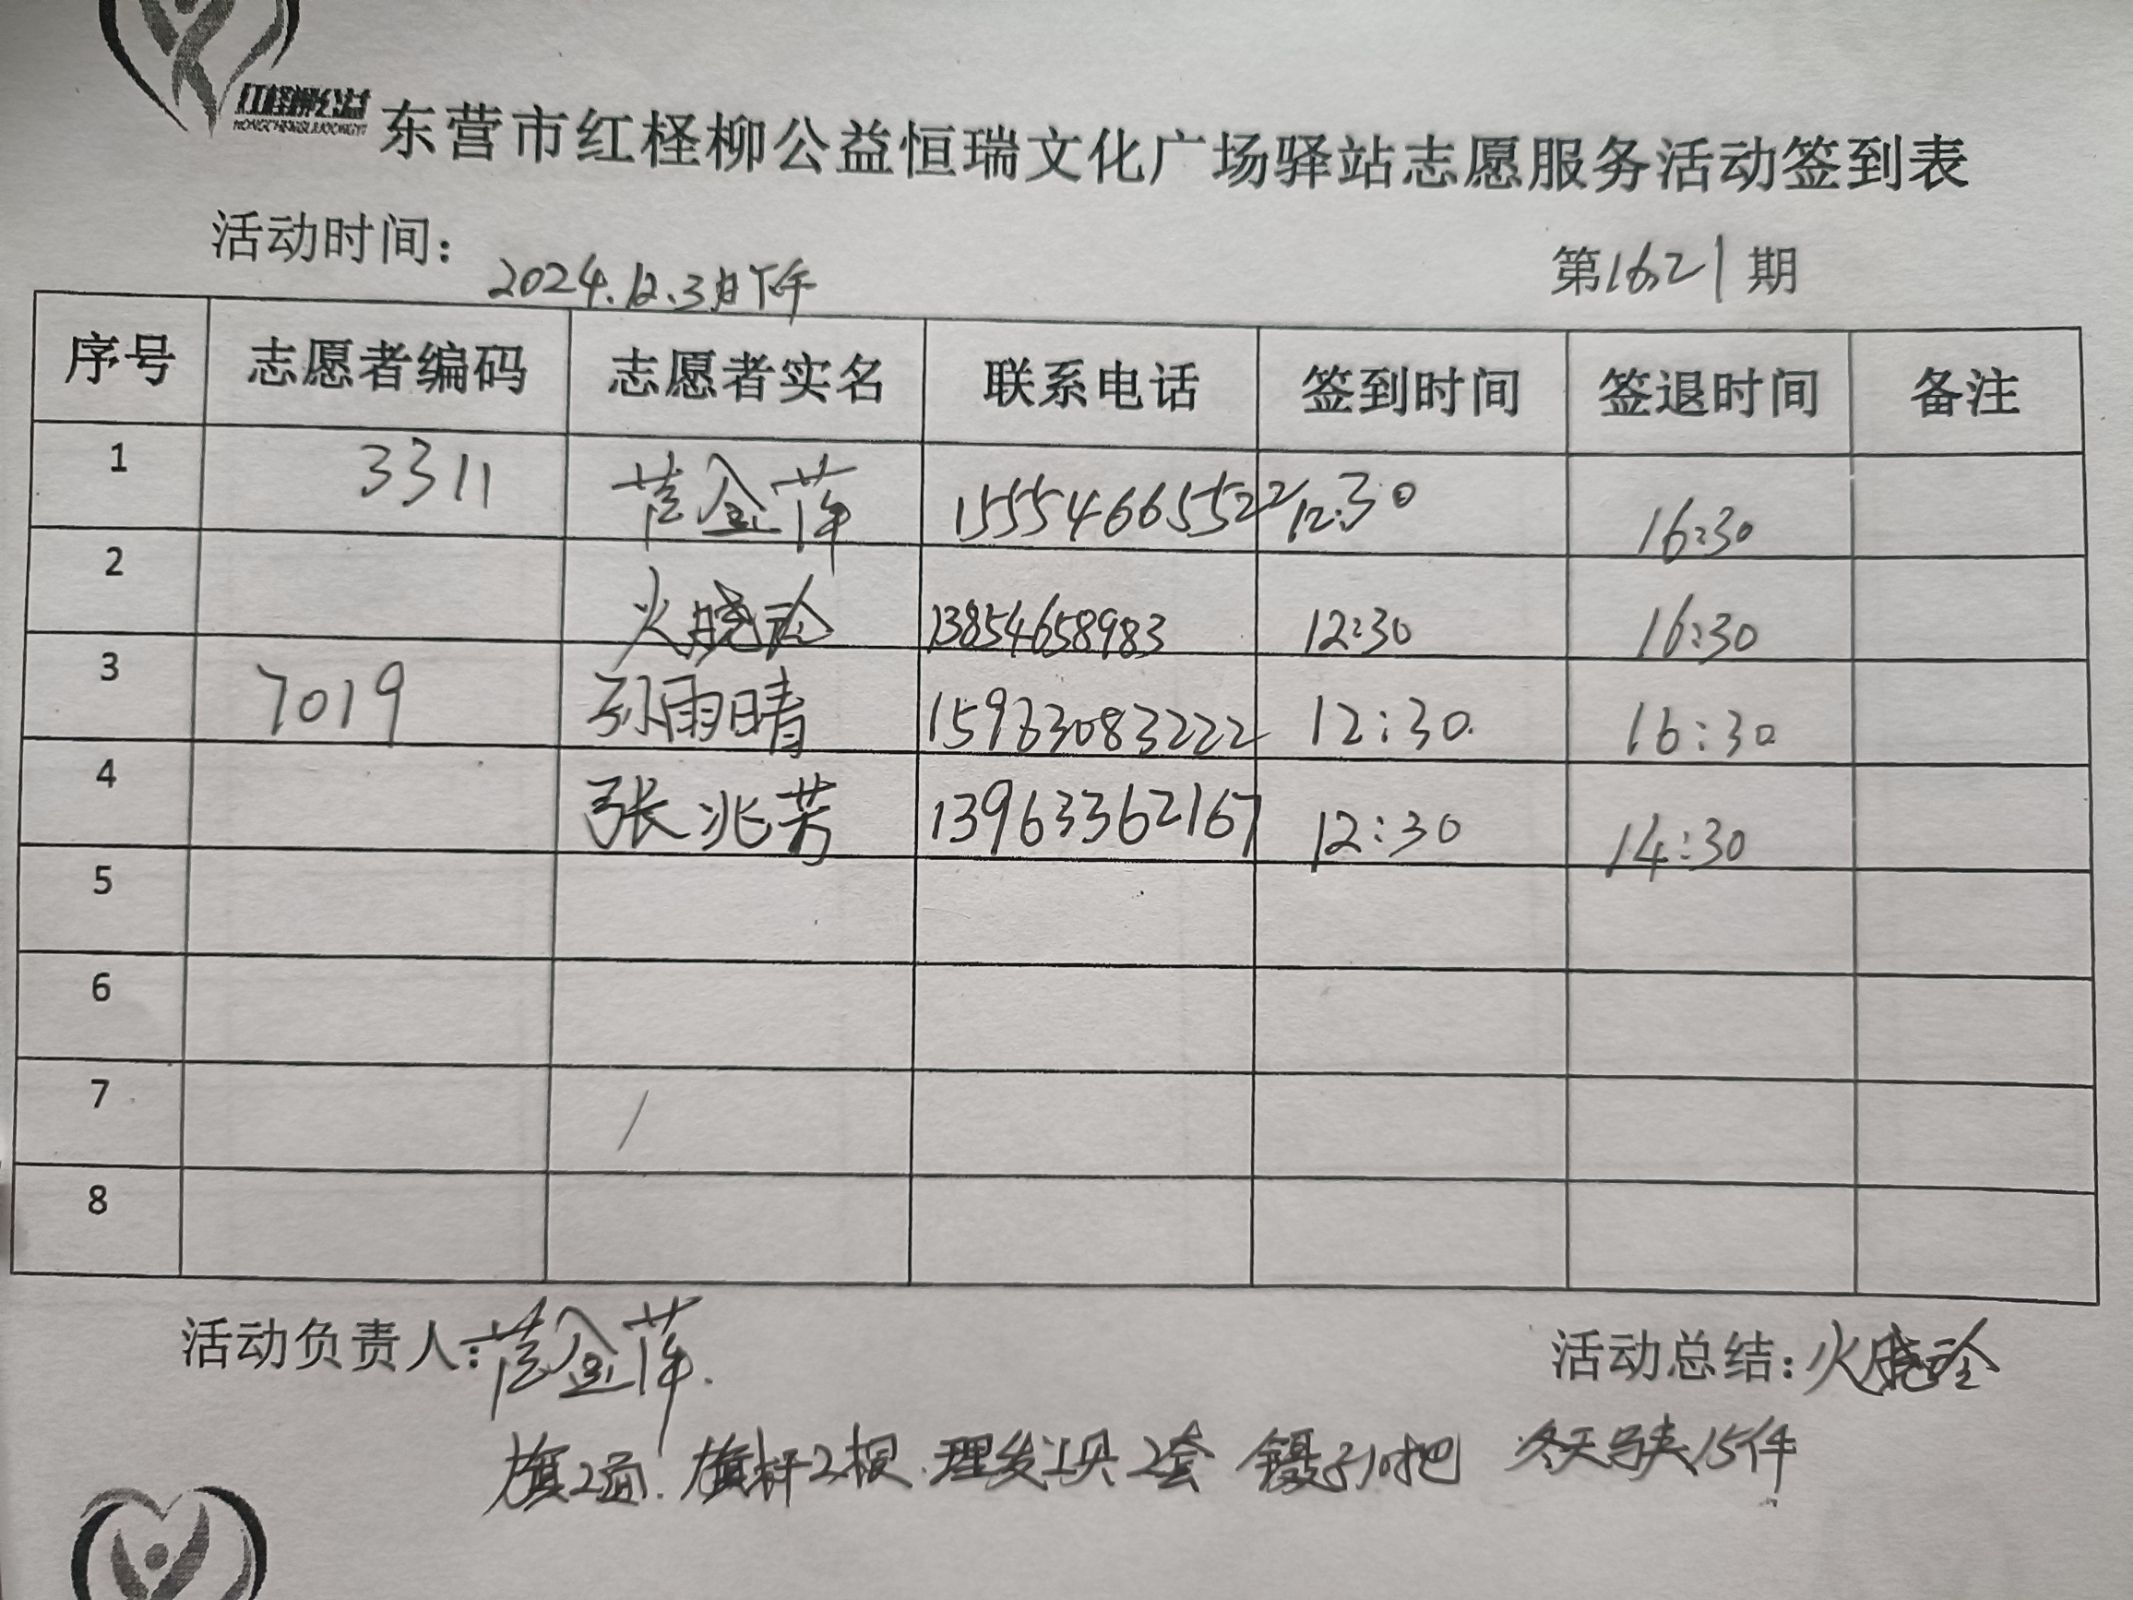 红柽柳公益
HONGCHENGLIUGONGYI
东营市红柽柳公益恒瑞文化广场驿站志愿服务活动签到表
活动时间: 2024.12.3日下午 第1621期
序号 志愿者编码 志愿者实名 联系电话 签到时间 签退时间 备注
1 3311 金萍 15554665522 12:30 16:30
2 火晓玲 13854658983 12:30 16:30
3 7019 孙雨晴 15963083222 12:30 16:30
4 张兆芳 13963362167 12:30 14:30
5
6
7
8
活动负责人: 金萍. 活动总结: 火晓玲
旗2面. 旗杆2根. 理发工具2套 镊子10把 冬天马夹15件